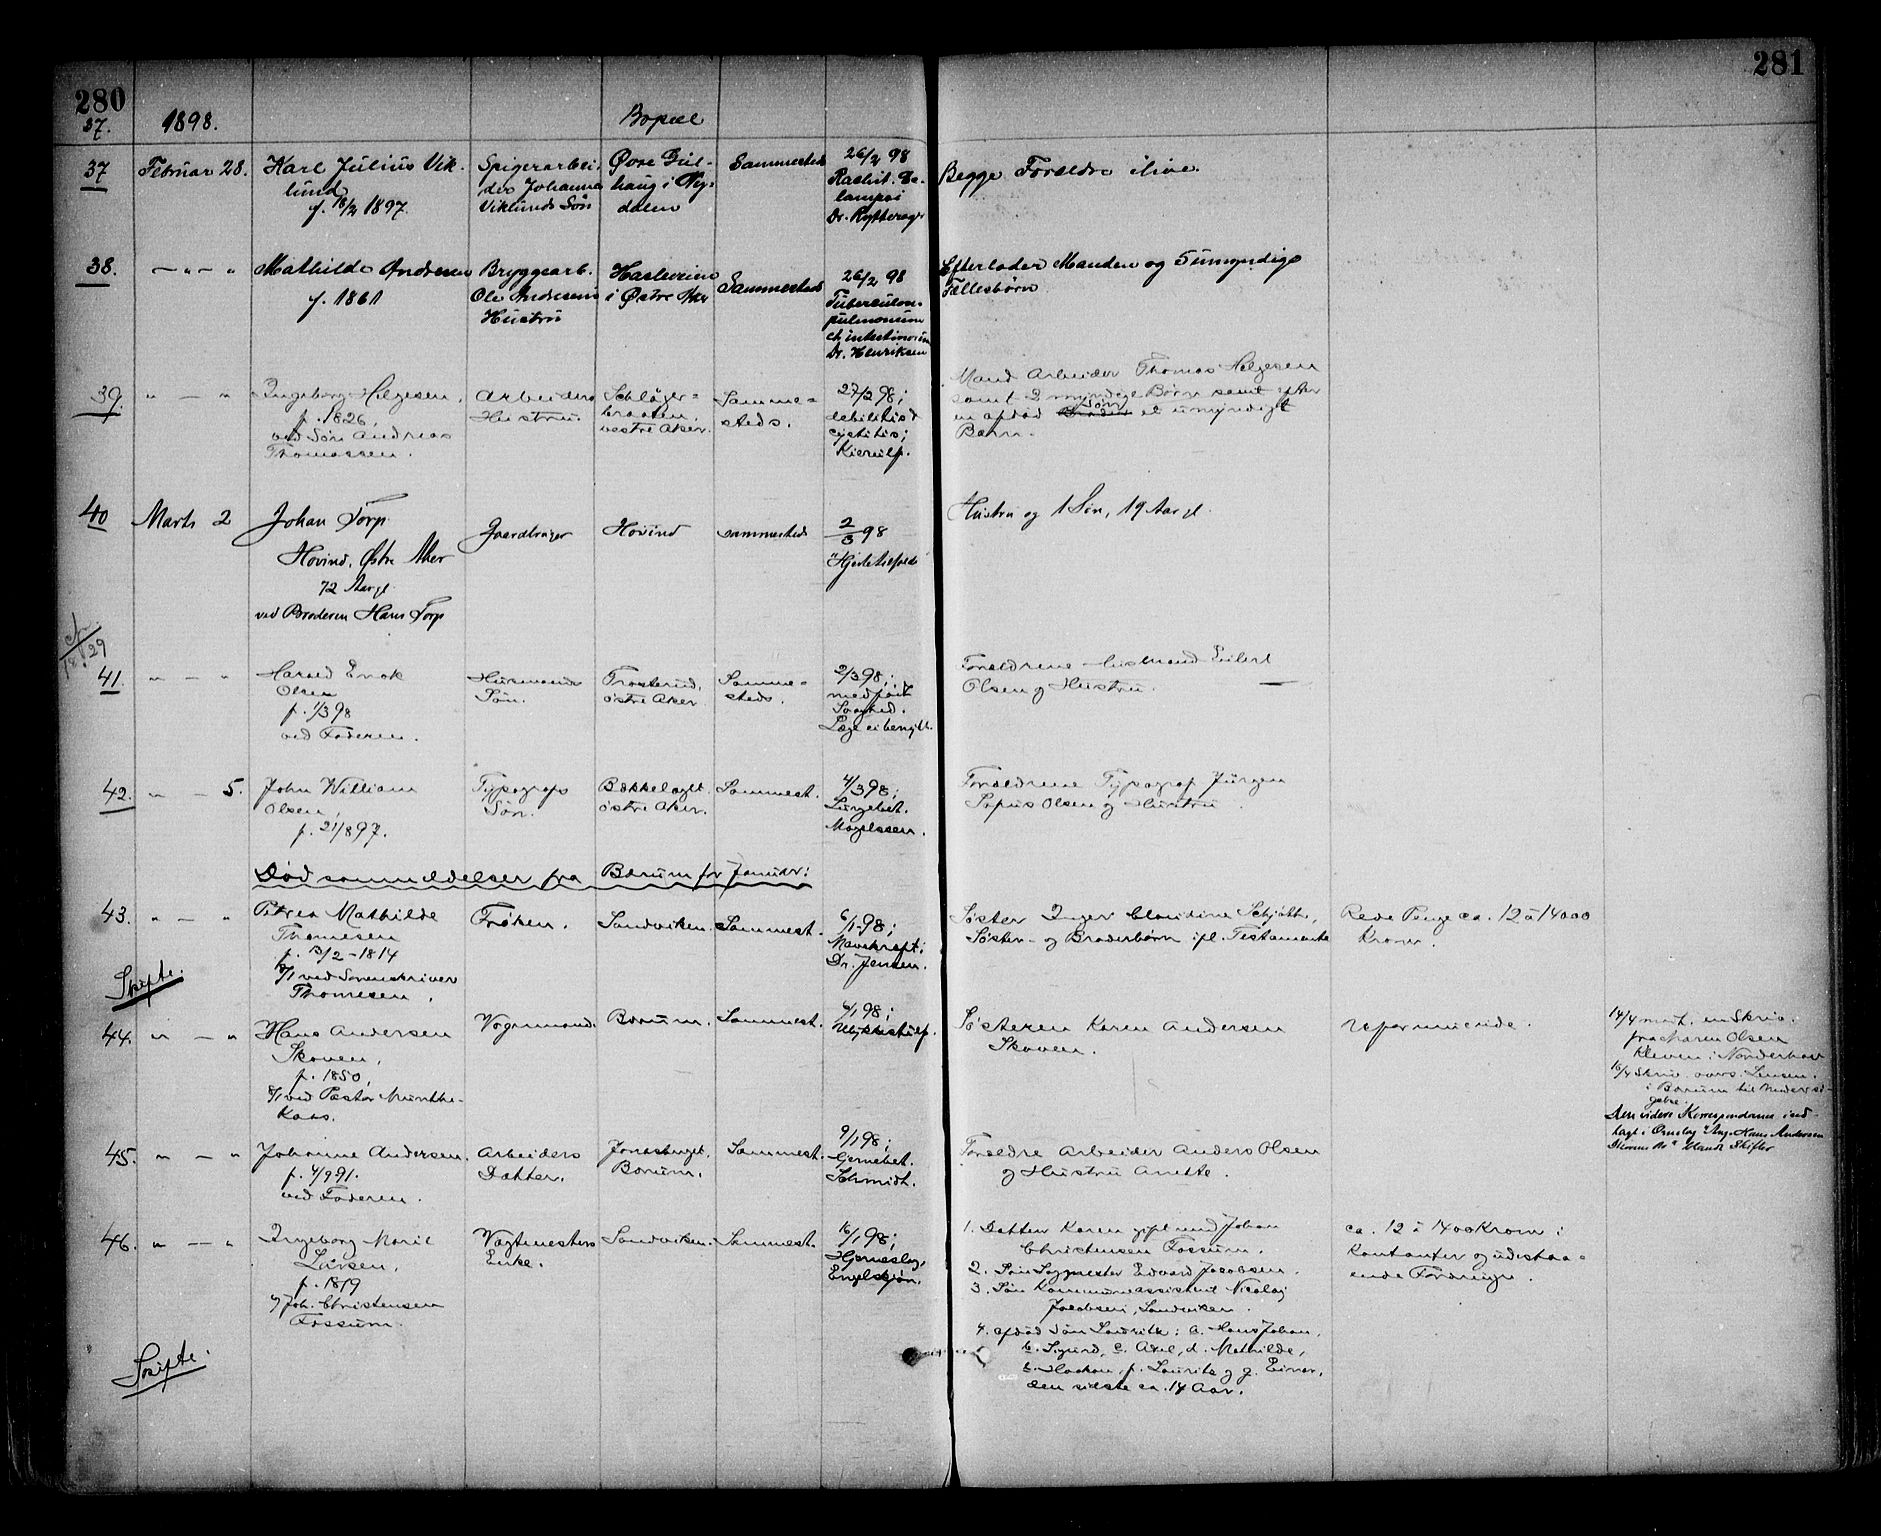 280
281
37.
1898.
Bopæl
37
Februar 28.
Karl Julius Vik-
lund
f. 18/2 1897.
Spigerarbei-
der Johannes
Viklunds Søn
Øvre Gul-
haug i Ny-
dalen
Sammesteds
26/2 98
Rachit.
Dr. Rytterager
Begge Forældre ilive.
38.
— " — "
Mathilde Andresen
f. 1861
Bryggearb.
Ole Andresens
Hustru
Hasleveien
i Østre Aker
Sammesteds
26/2 98
Tuberculos.
pulmonum
et intestinorum
Dr. Henriksen
Efterlader Manden og 5 umyndige
Fællesbørn
39.
" — "
Ingeborg Helgesen,
f. 1826,
ved Søn Andreas
Thomassen.
Arbeiders
Hustru.
Schlåger-
braaten,
vestre Aker.
Samme-
steds.
27/2 98;
debilitas &
cystitis;
Kierulf.
Mand Arbeider Thomas Helgesen
samt 2 myndige Børn samt efter
Søn
en afdød Broder et umyndigt
Barn.
40
Marts 2
Johan Torp
Hovind, Østre Aker
72 Aar gl.
ved Broderen Hans Torp
Gaardbruger
Hovind
sammesteds
2/3 98
"Hjertetilfælde"
Hustru og 1 Søn, 19 Aar gl.
29
41.
" — "
Harald Enok
Olsen
f. 1/3 98
ved Faderen.
Husmands
Søn.
Trosterud,
østre Aker
Samme-
steds.
2/3 98;
medfødt
Svaghed.
Læge ei benytt.
Forældrene Husmand Eilert
Olsen og Hustru.
42.
" — 5.
John William
Olsen,
f. 21/8 97.
Typografs
Søn.
Bækkelaget
østre Aker.
Sammest.
4/3 98;
Lungebet.
Magelssen.
Forældrene Typograf Jürgen
Sophus Olsen og Hustru.
Dødsanmeldelser fra Bærum for Januar:
43.
" — "
Petrea Mathilde
Thomesen
f. 13/2 - 1814
8/1 ved Sorenskriver
Thomesen,
Frøken.
Sandviken.
Sammest.
6/1 98;
Mavekræft;
Dr. Jensen.
Søster Inger Claudine Schjøtt,
Søster- og Broderbørn ifl. Testamente
Rede Penge ca. 12 à 14000
Kroner.
Skifte.
44.
" — "
Hans Andersen
Skoven,
f. 1850,
8/1 ved Pastor Munthe-
Kaas.
Vognmand.
Bærum.
Sammest.
6/1 98;
Ulykkestilf.
Søsteren Karen Andersen
Skoven.
Uformuende.
14/4 modt. en Skriv.
fra Maren Olsen
Kleven i Norderhov
16/4 Skriv. overs. Lensm.
i Bærum til Undersø-
gelse.
Den videre Korrespondance ind-
lagt i Omslag "Ang. Hans Andersen
Skovens Bo" blandt Skifter
45.
" — "
Johanne Andersen.
f. 4/9 91.
ved Faderen.
Arbeiders
Datter.
Jonasberget,
Bærum.
Sammest.
9/1 98;
Hjernebet.
Schmidt.
Forældre Arbeider Anders Olsen
og Hustru Anette.
46.
" — "
Ingeborg Marie
Larsen,
f. 1819
v/ Joh. Christensen
Fossum.
Vagtmesters
Enke.
Sandviken.
Sammest.
16/1 98;
Hjerneslag,
Engelskjøn.
1. Datter Karen gift med Johan
Christensen Fossum.
2. Søn Sagmester Edvard Jacobsen.
3. Søn Kommuneassistent Nicolaj
Jacobsen, Sandviken.
4. afdød Søn Lauritz: a. Hans Johan,
b. Sigurd, c. Axel, d. Mathilde,
e. Haakon, f. Lauritz og g. Einar,
den sidste ca. 14 Aar.
ca. 12 à 1400 Kroner i
Kontanter og udestaa-
ende Fordringer.
Skifte.